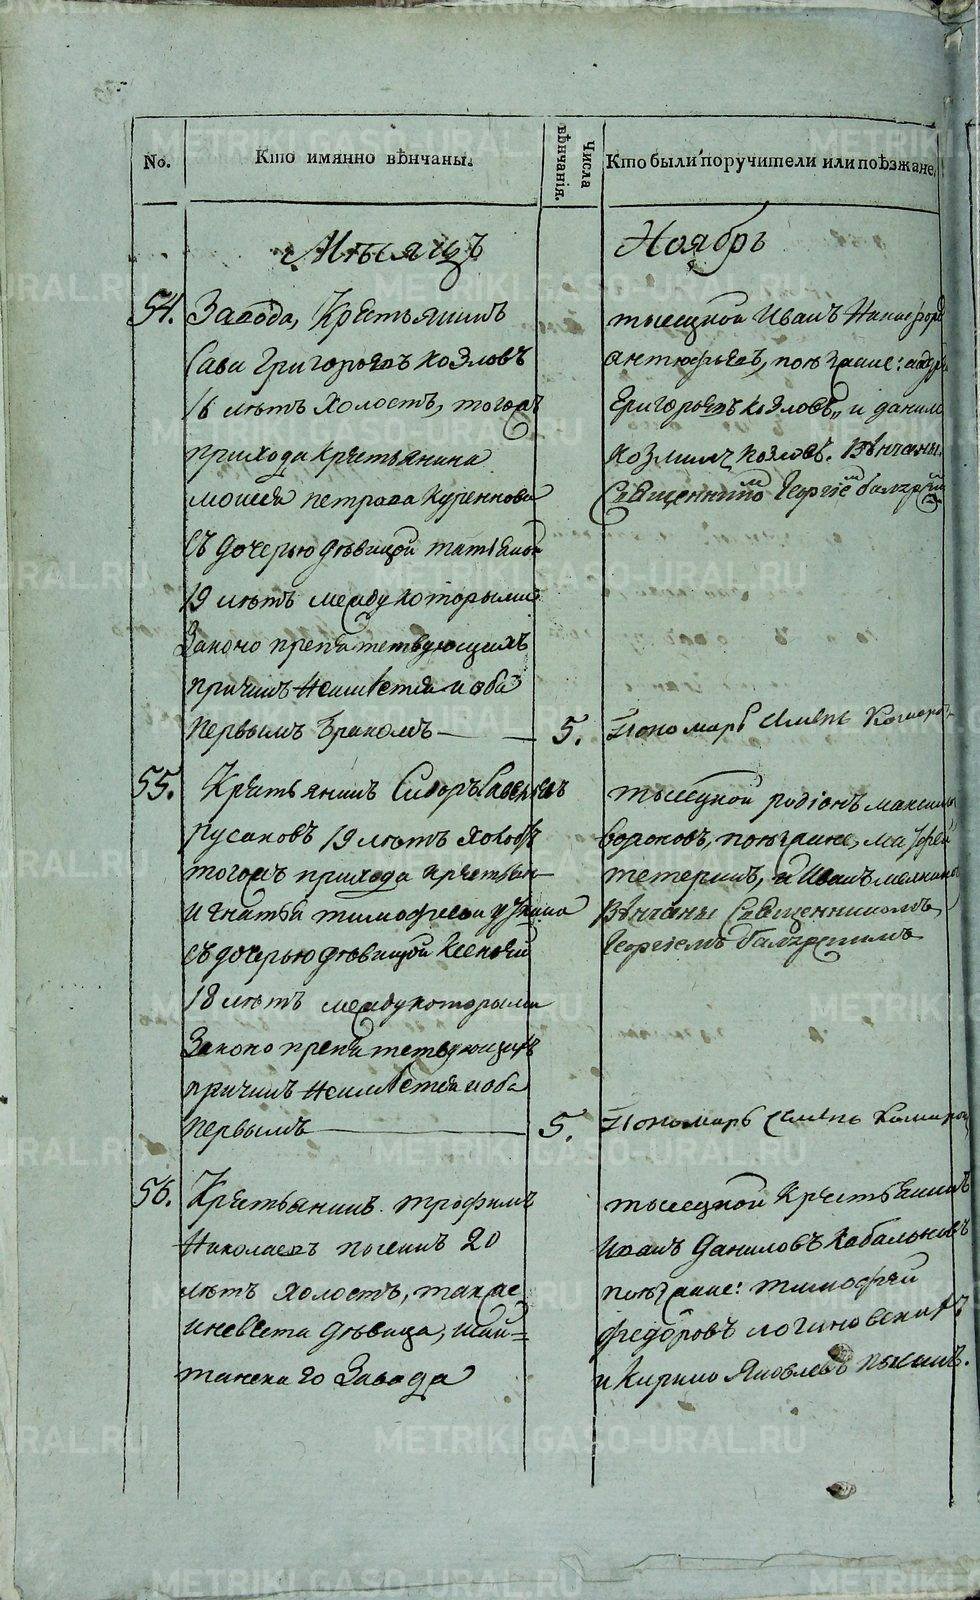 No.
Кто имянно вѣнчаны.
Числа вѣнчанія.
Кто были поручители или поѣзжане.
Мѣсяцъ
Ноябрь
54.
Завода, Крестьянинъ
Сава Григорьевъ Козловъ
16 лѣтъ холостъ, тогожъ
прихода крестьянина
моисея петрова Куренкова
съ дочерью дѣвицой татьяной
19 лѣтъ между которыми
Законо препятствующихъ
причинъ неимѣется и оба
первымъ бракомъ
5.
тысецкой Иванъ Никифоровъ
антюфьевъ, поѣзжане:
Григорьевъ козловъ, и данило
козминъ козловъ. Вѣнчаны
Священникомъ Георгіемъ
Пономарь Семенъ
55.
Крестьянинъ Сидоръ Савельевъ
русаковъ 19 лѣтъ холостъ
тогожъ прихода крестьян
игнатья тимофеева
съ дочерью дѣвицой Ксенией
18 лѣтъ между которыми
Законо препятствующихъ
причинъ неимѣется и оба
первымъ
5.
тысецкой родіонъ максимов
вороновъ, поѣзжане, матфей
тетеринъ, и Иванъ
Вѣнчаны Священникомъ
Георгіемъ
Пономарь Семенъ
56.
Крестьянинъ трофимъ
Николаевъ 20
лѣтъ холостъ, также
иневѣста дѣвица, шай=
танскаго Завода
тысецкой Крестьянинъ
Иванъ Даниловъ Кабальновъ
поѣзжане: тимофѣй
федоровъ логиновскихъ
и Кирило Яковлевъ
METRIKI.GASO-URAL.RU